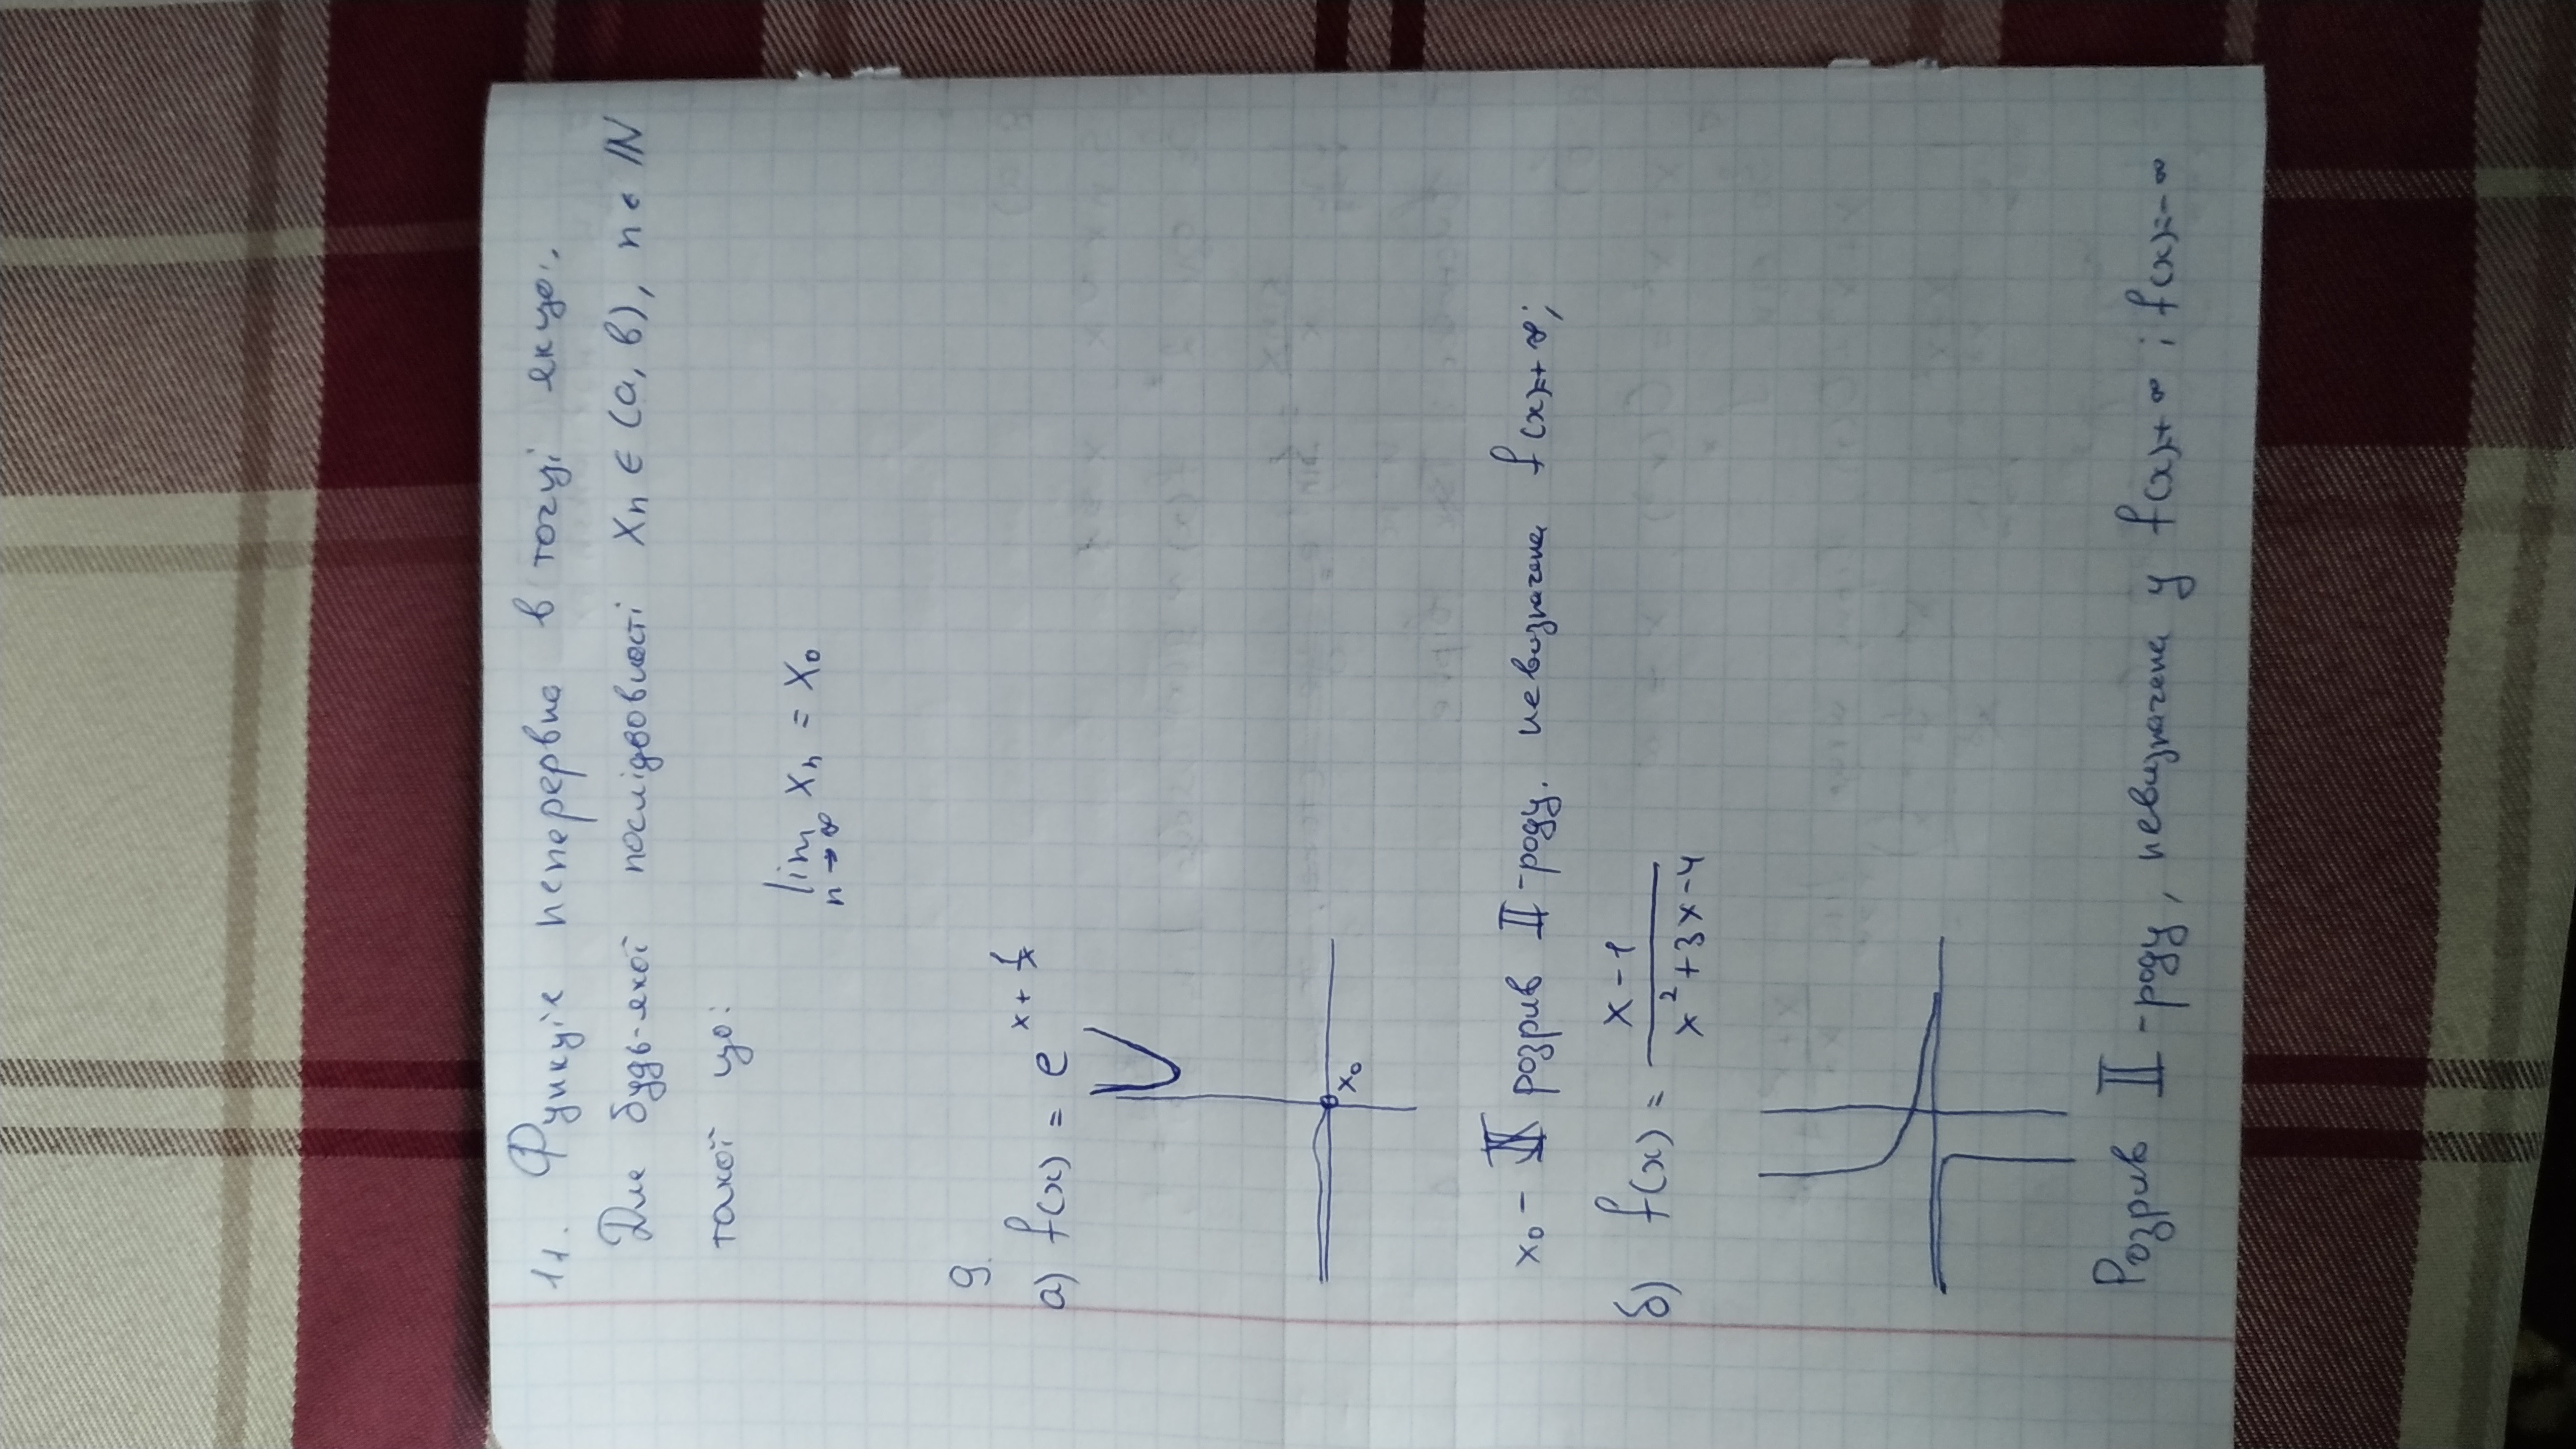 11. Функція неперервна в точці якщо:
Для будь-якої послідовності Xn ∈ (a, b), n ∈ IN
такої що:
lim Xn = X0
n→∞
9.
а) f(x) = e^(x + 1/x)
x0
x0 – розрив II-роду. невизначена f(x)=+∞;
б) f(x) = (x-1)/(x²+3x-4)
Розрив II-роду, невизначена у f(x)=+∞ і f(x)=-∞